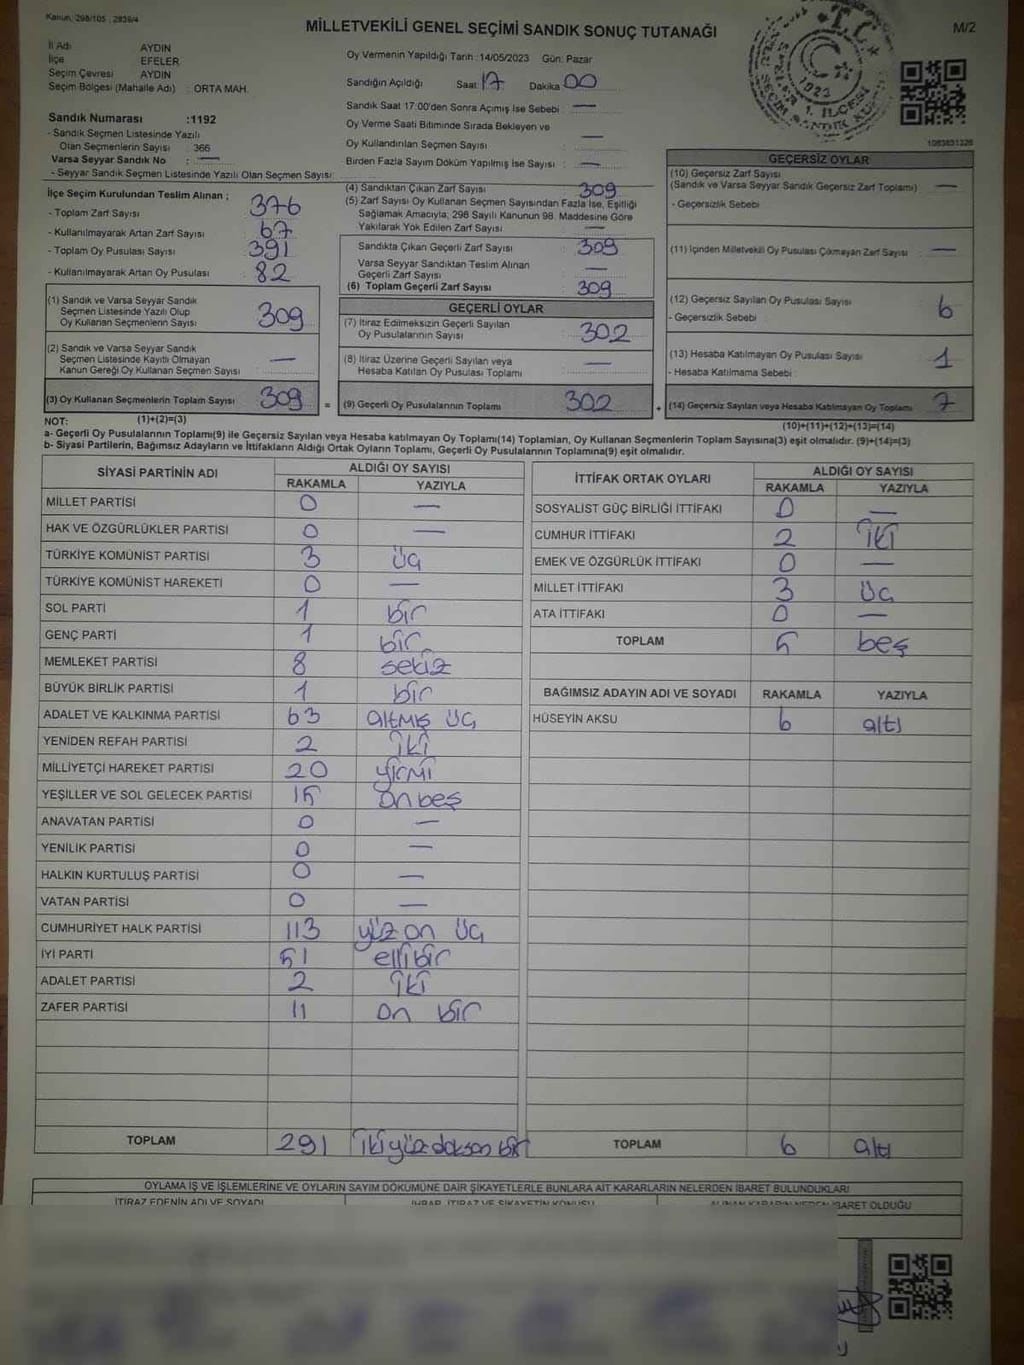 Kanun: 298/105, 2839/4
MİLLETVEKİLİ GENEL SEÇİMİ SANDIK SONUÇ TUTANAĞI
M/2
İl Adı AYDIN
İlçe EFELER
Seçim Çevresi AYDIN
Seçim Bölgesi (Mahalle Adı) : ORTA MAH.
Sandık Numarası :1192
- Sandık Seçmen Listesinde Yazılı
Olan Seçmenlerin Sayısı : 366
Varsa Seyyar Sandık No : —
- Seyyar Sandık Seçmen Listesinde Yazılı Olan Seçmen Sayısı:
Oy Vermenin Yapıldığı Tarih :14/05/2023 Gün: Pazar
Sandığın Açıldığı Saat: 17 Dakika 00
Sandık Saat 17:00'den Sonra Açımış İse Sebebi : —
Oy Verme Saati Bitiminde Sırada Bekleyen ve
Oy Kullandırılan Seçmen Sayısı : —
Birden Fazla Sayım Döküm Yapılmış İse Sayısı : —
T.C.
1923
1083831326
İlçe Seçim Kurulundan Teslim Alınan ;
- Toplam Zarf Sayısı : 376
- Kullanılmayarak Artan Zarf Sayısı : 67
- Toplam Oy Pusulası Sayısı : 391
- Kullanılmayarak Artan Oy Pusulası : 82
(1) Sandık ve Varsa Seyyar Sandık
Seçmen Listesinde Yazılı Olup
Oy Kullanan Seçmenlerin Sayısı : 309
(2) Sandık ve Varsa Seyyar Sandık
Seçmen Listesinde Kayıtlı Olmayan
Kanun Gereği Oy Kullanan Seçmen Sayısı : —
(3) Oy Kullanan Seçmenlerin Toplam Sayısı : 309 =
(4) Sandıktan Çıkan Zarf Sayısı : 309
(5) Zarf Sayısı Oy Kullanan Seçmen Sayısından Fazla İse, Eşitliği
Sağlamak Amacıyla, 298 Sayılı Kanunun 98. Maddesine Göre
Yakılarak Yok Edilen Zarf Sayısı : —
Sandıkta Çıkan Geçerli Zarf Sayısı : 309
Varsa Seyyar Sandıktan Teslim Alınan
Geçerli Zarf Sayısı : —
(6) Toplam Geçerli Zarf Sayısı : 309
GEÇERLİ OYLAR
(7) İtiraz Edilmeksizin Geçerli Sayılan
Oy Pusulalarının Sayısı : 302
(8) İtiraz Üzerine Geçerli Sayılan veya
Hesaba Katılan Oy Pusulası Toplamı : —
(9) Geçerli Oy Pusulalarının Toplamı : 302 +
GEÇERSİZ OYLAR
(10) Geçersiz Zarf Sayısı
(Sandık ve Varsa Seyyar Sandık Geçersiz Zarf Toplamı) : —
- Geçersizlik Sebebi :
(11) İçinden Milletvekili Oy Pusulası Çıkmayan Zarf Sayısı : —
(12) Geçersiz Sayılan Oy Pusulası Sayısı : 6
- Geçersizlik Sebebi :
(13) Hesaba Katılmayan Oy Pusulası Sayısı : 1
- Hesaba Katılmama Sebebi :
(14) Geçersiz Sayılan veya Hesaba Katılmayan Oy Toplamı : 7
NOT: (1)+(2)=(3)
(10)+(11)+(12)+(13)=(14)
a- Geçerli Oy Pusulalarının Toplamı(9) ile Geçersiz Sayılan veya Hesaba katılmayan Oy Toplamı(14) Toplamları, Oy Kullanan Seçmenlerin Toplam Sayısına(3) eşit olmalıdır. (9)+(14)=(3)
b- Siyasi Partilerin, Bağımsız Adayların ve İttifakların Aldığı Ortak Oyların Toplamı, Geçerli Oy Pusulalarının Toplamına(9) eşit olmalıdır.
SİYASİ PARTİNİN ADI ALDIĞI OY SAYISI
RAKAMLA YAZIYLA
MİLLET PARTİSİ 0 —
HAK VE ÖZGÜRLÜKLER PARTİSİ 0 —
TÜRKİYE KOMÜNİST PARTİSİ 3 üç
TÜRKİYE KOMÜNİST HAREKETİ 0 —
SOL PARTİ 1 bir
GENÇ PARTİ 1 bir
MEMLEKET PARTİSİ 8 sekiz
BÜYÜK BİRLİK PARTİSİ 1 bir
ADALET VE KALKINMA PARTİSİ 63 altmış üç
YENİDEN REFAH PARTİSİ 2 iki
MİLLİYETÇİ HAREKET PARTİSİ 20 yirmi
YEŞİLLER VE SOL GELECEK PARTİSİ 15 on beş
ANAVATAN PARTİSİ 0 —
YENİLİK PARTİSİ 0 —
HALKIN KURTULUŞ PARTİSİ 0 —
VATAN PARTİSİ 0 —
CUMHURİYET HALK PARTİSİ 113 yüz on üç
İYİ PARTİ 51 elli bir
ADALET PARTİSİ 2 iki
ZAFER PARTİSİ 11 on bir
TOPLAM 291 iki yüz doksan bir
İTTİFAK ORTAK OYLARI ALDIĞI OY SAYISI
RAKAMLA YAZIYLA
SOSYALİST GÜÇ BİRLİĞİ İTTİFAKI 0 —
CUMHUR İTTİFAKI 2 iki
EMEK VE ÖZGÜRLÜK İTTİFAKI 0 —
MİLLET İTTİFAKI 3 üç
ATA İTTİFAKI 0 —
TOPLAM 5 beş
BAĞIMSIZ ADAYIN ADI VE SOYADI RAKAMLA YAZIYLA
HÜSEYİN AKSU 6 altı
TOPLAM 6 altı
OYLAMA İŞ VE İŞLEMLERİNE VE OYLARIN SAYIM DÖKÜMÜNE DAİR ŞİKAYETLERLE BUNLARA AİT KARARLARIN NELERDEN İBARET BULUNDUKLARI
İTİRAZ EDENİN ADI VE SOYADI İHBAR, İTİRAZ VE ŞİKAYETİN KONUSU ALINAN KARARIN NEDEN İBARET OLDUĞU